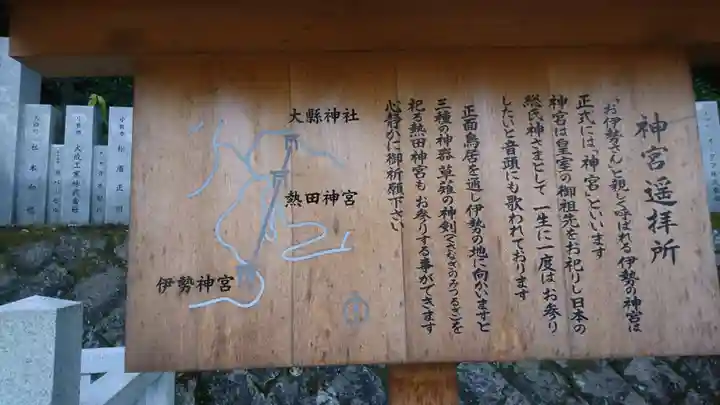 神宮遥拝所
「お伊勢さん」と親しく呼ばれる伊勢の神宮は
正式には、「神宮」といいます
神宮は皇室の御祖先をお祀りし日本の
総氏神さまとして、一生に一度はお参り
したいと音頭にも歌われております
正面鳥居を通し伊勢の地に向かいますと
三種の神器 草薙の神剣(くさなぎのみつるぎ)を
祀る熱田神宮もお参りする事ができます
心静かに御祈願下さい
大縣神社
熱田神宮
伊勢神宮